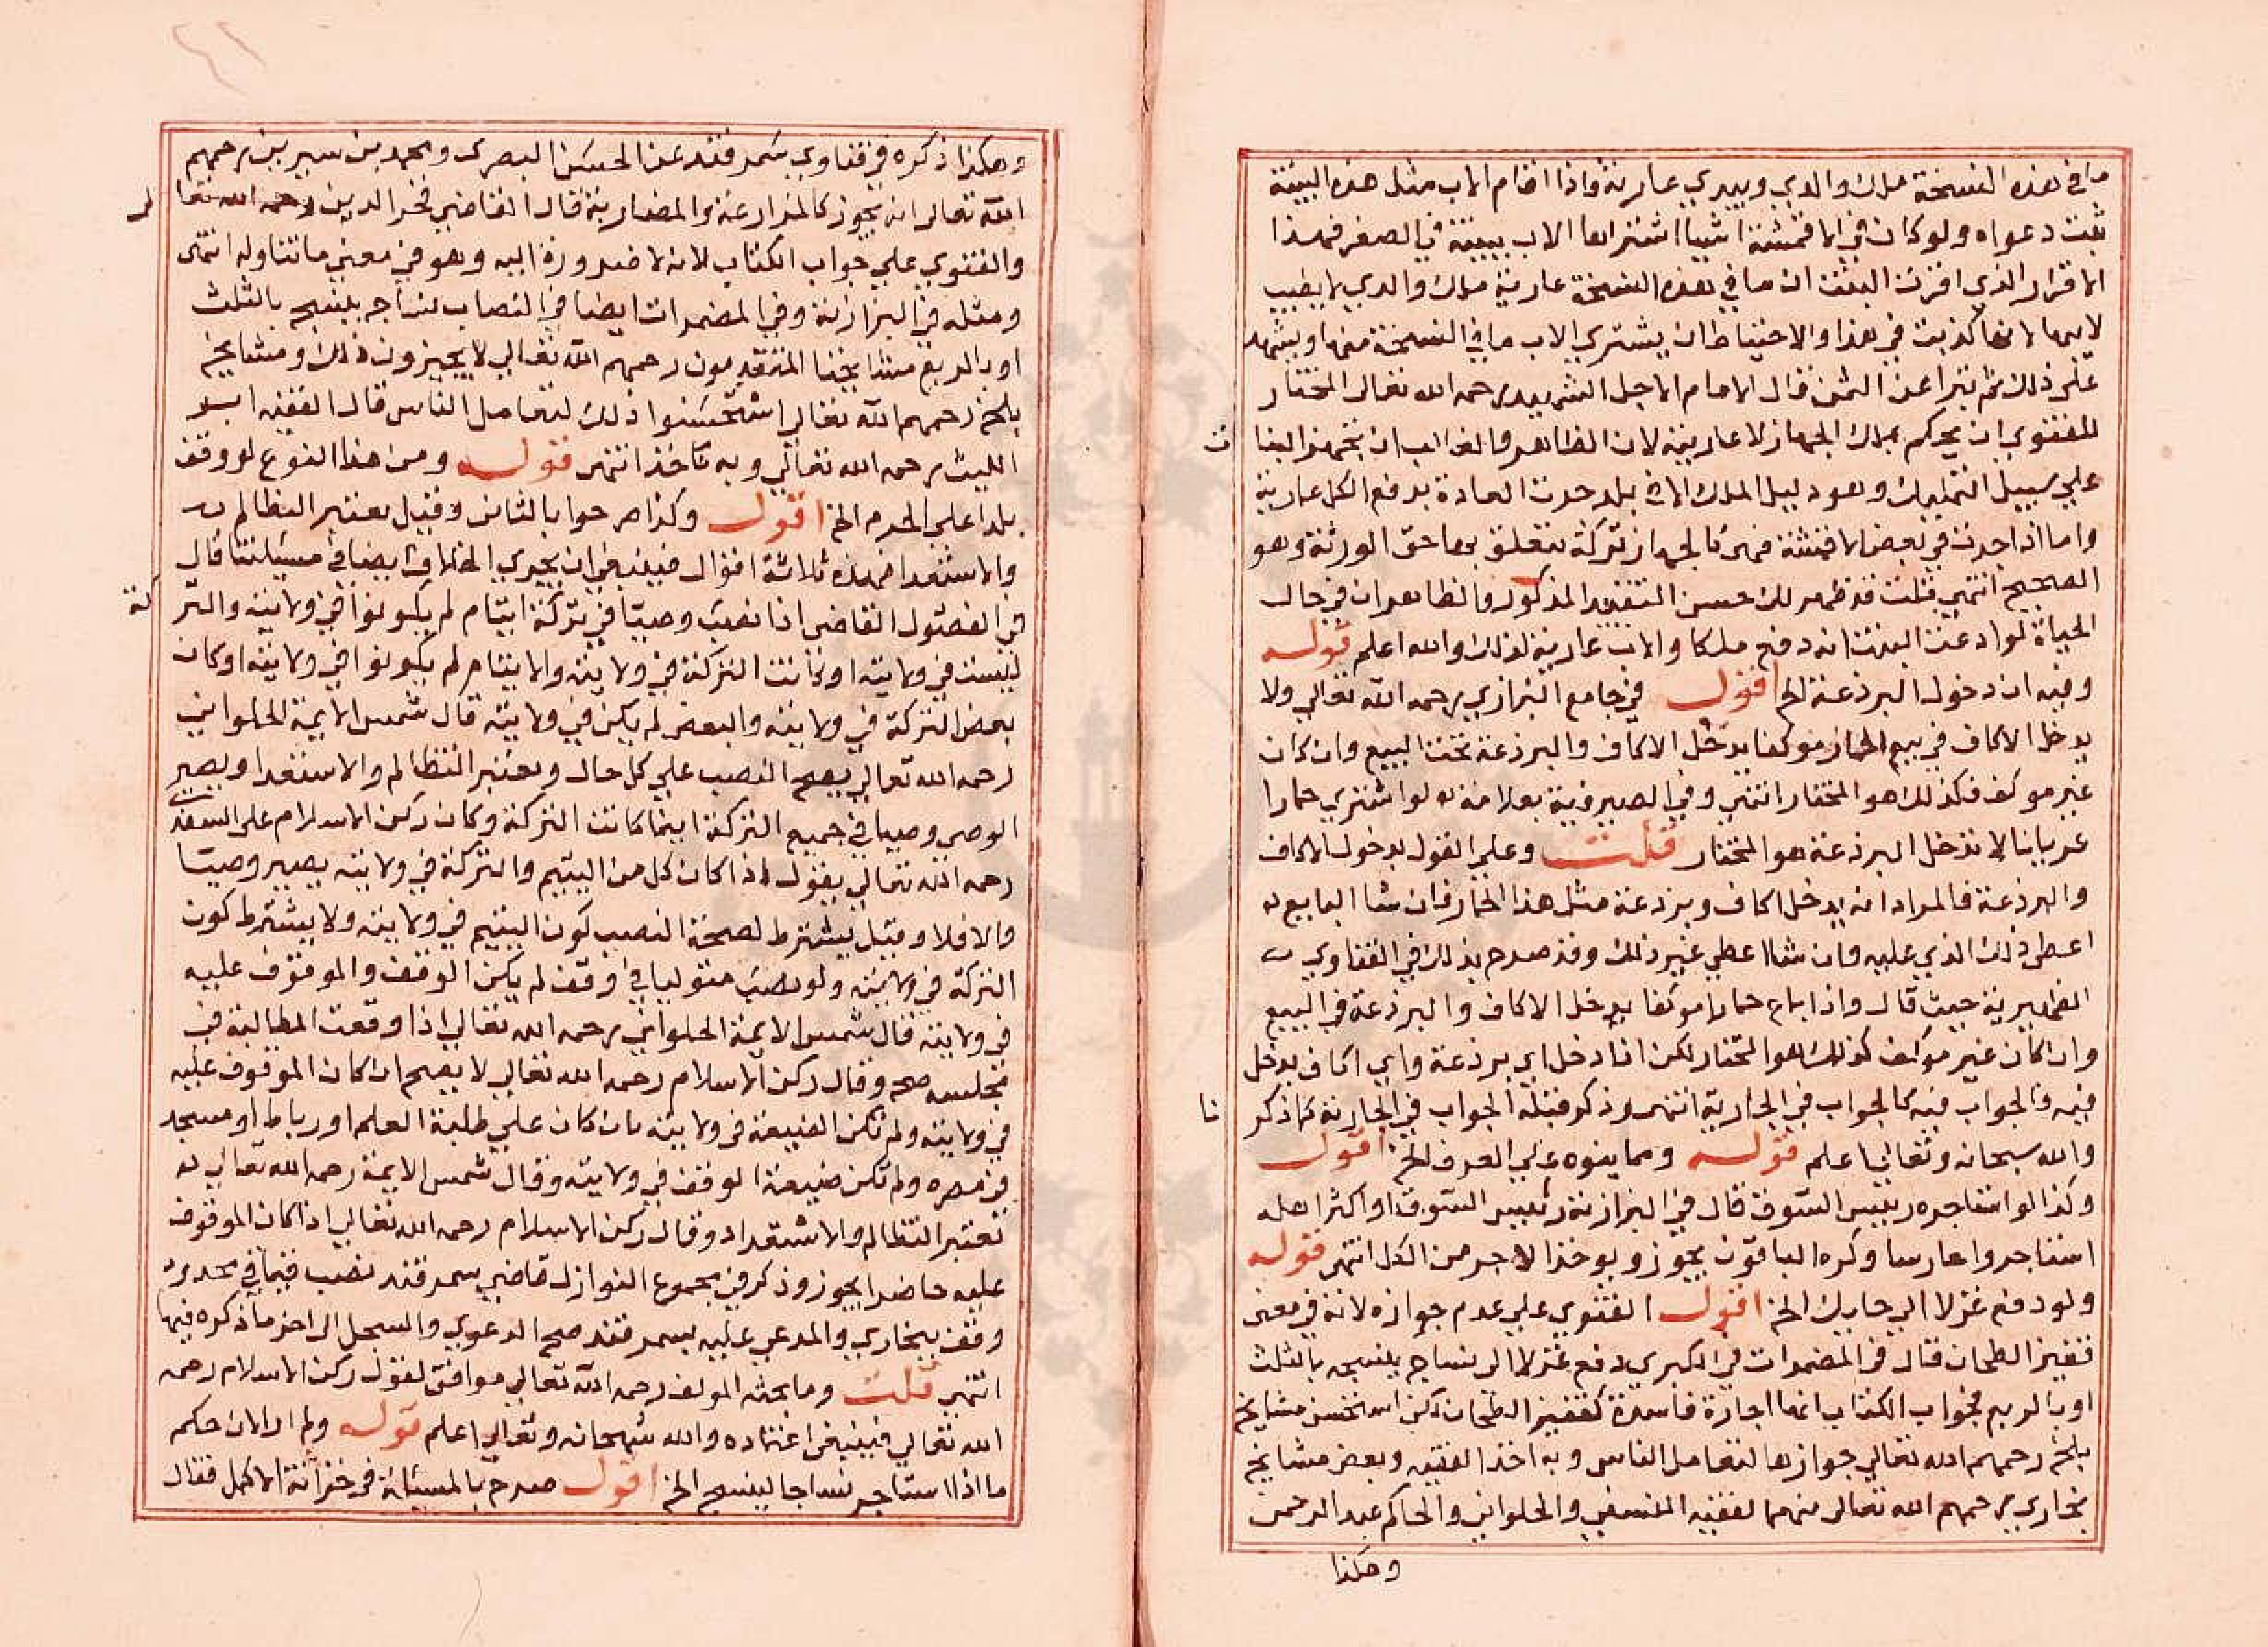 ما في هذه النسخة ملك والدي وبيدي عارية واذا اقام الاب مثل هذه البينة
ثبت دعواه ولو كان في الاقمشة اشيا اشتراها الاب ببينة في الصغر فهذا
الاقرار الذي اقرت البنت ان ما في هذه النسخة عارية ملك والدي لا يطيب
لابيها لانها كذبت في هذا والاحتياط ان يشتري الاب ما في النسخة منها ويشهد
على ذلك ثم تبرا عن الثمن قال الامام الاجل الشهيد رحمه الله تعالى المختار
للفتوي ان يحكم بملك الجهاز لا عارينه لان الظاهر والغالب ان تجهيز البنا
علي سبيل التمليك وهو دليل الملك الا في بلد جرت العادة بدفع الكل عارية
واما اذا جرت في بعض الاقمشة فهي كالجهاز تركة يتعلق بها حق الورثة وهو
الصحيح انتهى قلت قد ظهر لك حسن التقييد المذكور والظاهر ان في حال
الحياة لو ادعت البنت انه دفع ملكا والاب عارية لذلك والله اعلم قوله
وفيه ان دخول البرذعة الخ اقول في جامع البزازي رحمه الله تعالي ولا
يدخل الاكاف في بيع الحمار موكفا يدخل الاكاف والبرذعة تحت البيع وان كان
غير موكف فكذلك هو المختار انتهي وفي الصيرفية بعلامة له لو اشتري حمارا
عريانا لا تدخل البرذعة هو المختار قلت وعلي القول بدخول الاكاف
والبرذعة فالمراد انه يدخل اكاف وبرذعة مثل هذا الحمار فان شا البايع له
اعطي ذلك الذي عليه وان شا اعطي غير ذلك وقد صرح بذلك في الفتاوي
الظهيرية حيث قال واذا باع حمارا موكفا يدخل الاكاف والبرذعة في البيع
وان كان غير موكف كذلك هو المختار لكن اذا دخل اي برذعة واي اكاف يدخل
فيه والجواب فيه كالجواب في الجارية انتهى وذكر قبله الجواب في الجارية كما ذكر
والله سبحانه وتعالى اعلم قوله ومما بنوه علي العرف الخ اقول
وكذا لو استاجره رييس السوق قال في البزازية رئيس السوق او اكثر اهله
استاجروا حارسا وكره الباقون يجوز ويوخذ الاجر من الكل انتهى قوله
ولو دفع غزلا الي حايك الخ اقول الفتوي علي عدم جوازه لانه في معني
قفيز الطحان قال في المضمرات في الكبري دفع غزلا الي نساج ينسجه بالثلث
او بالربع فجواب الكتاب انها اجارة فاسدة كقفيز الطحان لكن استحسن مشايخ
بلخ رحمهم الله تعالي جوازها لتعامل الناس وبه اخذ الفقيه وبعض مشايخ
بخاري رحمهم الله تعالى منهم الفقيه النسفي والحلواني والحاكم عبد الرحمن
وهكذا
وهكذا ذكره في فتاوي سمرقند عن الحسن البصري ومحمد بن سيرين رحمهم
الله تعالى انه يجوز كالمزارعة والمضاربة قال القاضي فخر الدين رحمه الله تعا
والفتوي علي جواب الكتاب لانه لا ضرورة اليه وهو في معني ما تناوله انتهى
ومثله في البزازية وفي المضمرات ايضا في النصاب نساج ينسج بالثلث
او بالربع مشايخنا المتقدمون رحمهم الله تعالي لا يجيزون ذلك ومشايخ
بلخ رحمهم الله تعالي استحسنوا ذلك لتعامل الناس قال الفقيه ابو
الليث رحمه الله تعالي وبه ناخذ انتهى قوله ومن هذا النوع لو وقف
بلدا علي الحرم الخ اقول وكذا مر جوابا لثاني وقيل يعتبر التظالم
والاستعدا فهذه ثلاثة اقوال فينبغي ان يجري الخلاف ايضا في مسيلتنا قال
في الفصول القاضي اذا نصب وصيا في تركة ايتام لم يكونوا في ولايته والتر
ليست في ولايته او كانت التركة في ولايته والايتام لم يكونوا في ولايته او كان
بعض التركة في ولايته والبعض لم يكن في ولايته قال شمس الايمة الحلواني
رحمه الله تعالى يصح النصب علي كل حال ويعتبر التظالم والاستعدا ويصير
الوصي وصيا في جميع التركة اينما كانت التركة وكان ركن الاسلام علي السغدي
رحمه الله تعالى يقول اذا كان كل من اليتيم والتركة في ولايته يصير وصيا
والا فلا وقيل يشترط لصحة النصب كون اليتيم في ولايته ولا يشترط كون
التركة في ولايته ولو نصب متوليا في وقف لم يكن الوقف والموقوف عليه
في ولايته قال شمس الايمة الحلواني رحمه الله تعالي اذا وقعت المطالبة في
مجلسه صح وقال ركن الاسلام رحمه الله تعالي لا يصح ان كان الموقوف عليه
في ولايته ولم تكن الضيعة في ولايته بان كان علي طلبة العلم او رباط او مسجد
في مصره ولم تكن ضيعة الوقف في ولايته وقال شمس الايمة رحمه الله تعالي له
تعتبر التظالم والاستعداد وقال ركن الاسلام رحمه الله تعالي اذا كان الموقوف
عليه حاضرا يجوز وذكر في مجموع النوازل قاضي سمرقند نصب قيما في محدود
وقف ببخاري والمدعي عليه بسمرقند صح الدعوي والسجل الى اخر ما ذكره فيها
انتهى قلت وما بحثه المولف رحمه الله تعالي موافق لقول ركن الاسلام رحمه
الله تعالي فينبغي اعتماده والله سبحانه وتعالى اعلم قوله ولم ار الان حكم
ما اذا استاجر نساجا لينسج الخ اقول صرح بالمسئلة في خزانة الاكمل فقال